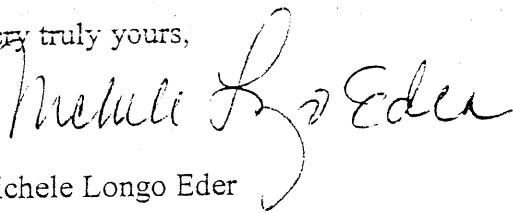 ery truly yours,
Michele Longo Eder
ichele Longo Eder